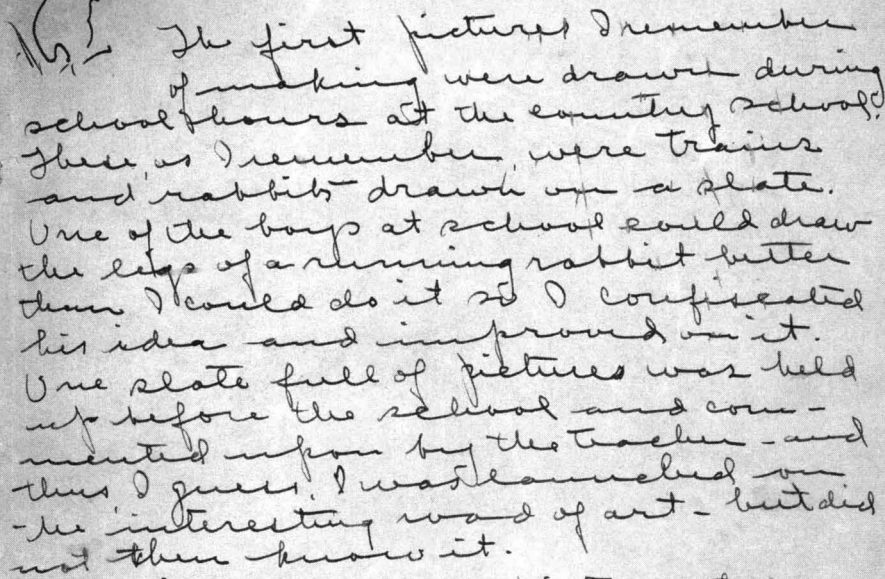 The first pictures I remember
of making were drawn during
school hours at the country school.
These, as I remember, were trains
and rabbits drawn on a slate.
One of the boys at school could draw
the legs of a running rabbit better
than I could do it so I confiscated
his idea and improved on it.
One slate full of pictures was held
up before the school and com-
mented upon by the teacher - and
thus I guess, I was launched on
the interesting road of art - but did
not then know it.